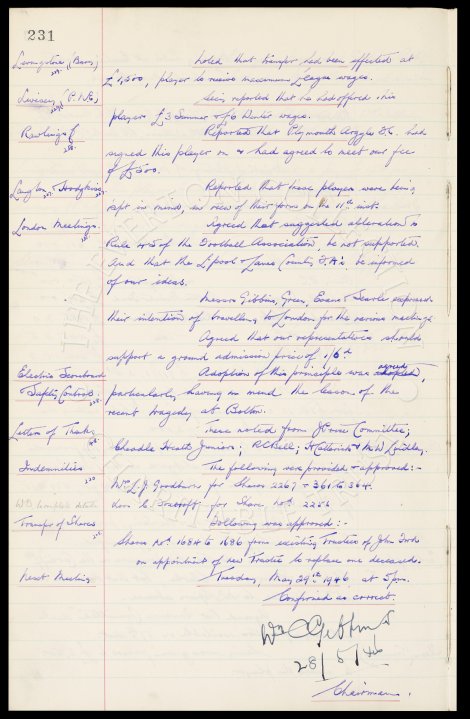 231
noted that transfer had been effected at
£1,500, player to receive maximum League wages.
Secy reported that he had offered this
player £3 Summer &
Winter wages.
Rawlings
Reported that Plymouth Argyle F.C. had
signed this player on & had agreed to meet our fee
of £500.
Reported that these players were being
kept in mind, in view of their forms on the 11th inst.
London Meetings.
Agreed that suggested alteration to
Rule of the Football Association, be not supported.
And that the L'pool & Lancs County F.A's. be informed
of our ideas.
Messrs Gibbins, Green, Evans & Searle expressed
their intention of travelling to London for the various meetings.
Agreed that our representatives should
support a ground admission price of 1/6d
Electric Scoreboard
& Safety Controls
Adoption of this principle was agreed,
particularly having in mind the lesson of the
recent tragedy at Bolton.
Letters of Thanks
These noted from House Committee;
Cheadle Heath Juniors; R.C. Bell; H. Catterick & Mr W.
Indemnities
The following were provided & approved:-
Mr L.J. for Shares 2267 & 361 to 364.
for Share, No. 2256
Transfer of Shares
Following was approved:-
Shares Nos 1684 to 1686 from existing Trustees of John
on appointment of new Trustee to replace one deceased.
Next Meeting
Tuesday, May 29th 1946 at 5pm.
Confirmed as correct.
Wm C Gibbins
28/5/46
Chairman.